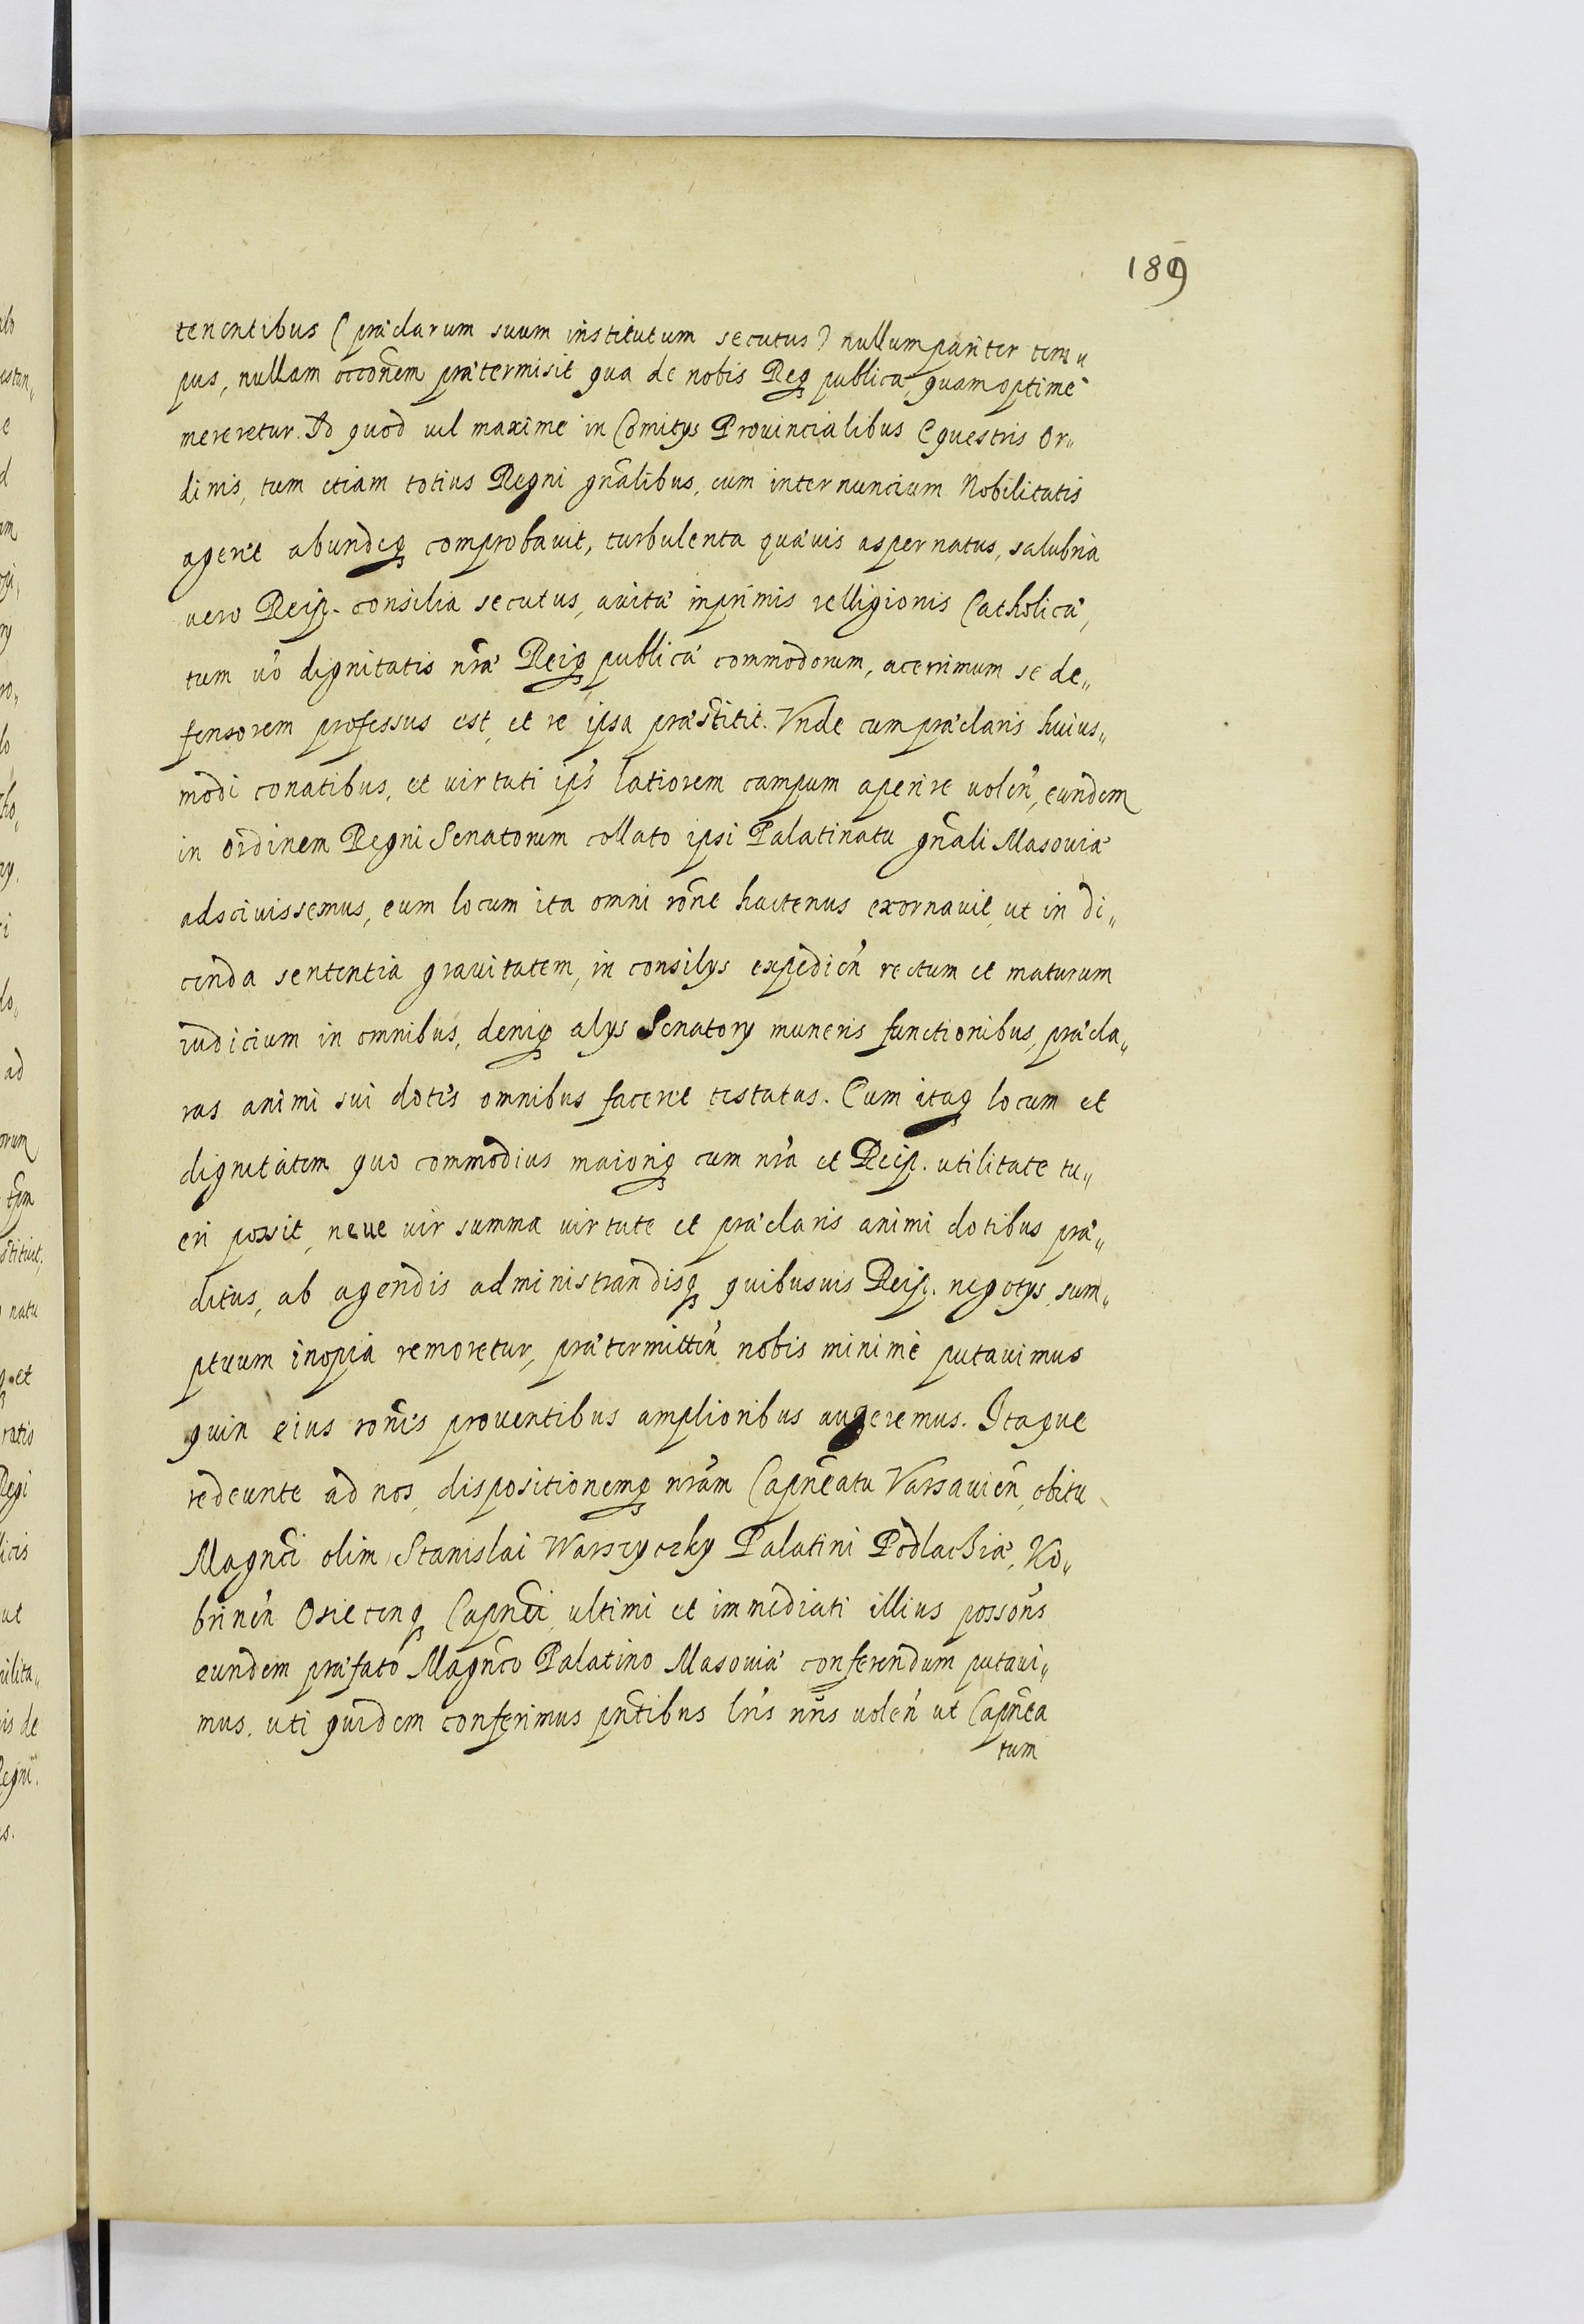 189
tenentibus (præclarum suum institutum secutus) nullum pariter tem„
pus, nullam occōnem prætermisit qua de nobis Req publica, quam optime
mereretur. Id quod vel maxime in Comitys Provincialibus Equestris Or„
dinis, tum etiam totius Regni gnālibus, cum internuncium Nobilitatis
ageret abundeq comprobavit, turbulenta quævis aspernatus, salubria
vero Reip. consilia secutus, avitæ inprimis relligionis Catholicæ,
tum vo dignitatis nræ Reiq publicæ commodorum, acerrimum se de„
fensorem professus est, et re ipsa præstitit. Vnde cum præclaris huius„
modi conatibus, et virtuti ips latiorem campum aperire volen, eundem
in ordinem Regni Senatorum collato ipsi Palatinatu gnāli Masoviæ
adscivissemus, eum locum ita omni rōne hactenus exornavit, ut in di„
cenda sententia gravitatem, in consilys expedien rectum et maturum
iudicium in omnibus, deniq alys Senatory muneris functionibus, præcla„
ras animi sui dotes omnibus faceret testatas. Cum itaq locum et
dignitatem quo commodius maioriq cum nra et Reip. utilitate tu„
eri possit, neve vir summa virtute et præclaris animi dotibus præ„
ditus, ab agendis administrandisq quibusvis Reip. negotys, sum„
ptuum inopia remoretur, prætermitten nobis minime putavimus
quin eius rōnes proventibus amplioribus augeremus. Itaque
redeunte ad nos, dispositionemq nram Capneatu Varsavien, obitu
Magnci olim Stanislai Warszyczky Palatini Podlachiæ, Ko„
brinen Osiecenq Capnei, ultimi et immediati illius possoris
eundem præfato Magnco Palatino Masoviæ conferendum putavi„
mus. uti quidem conferimus pntibus lris nris volen ut Capnea
tum